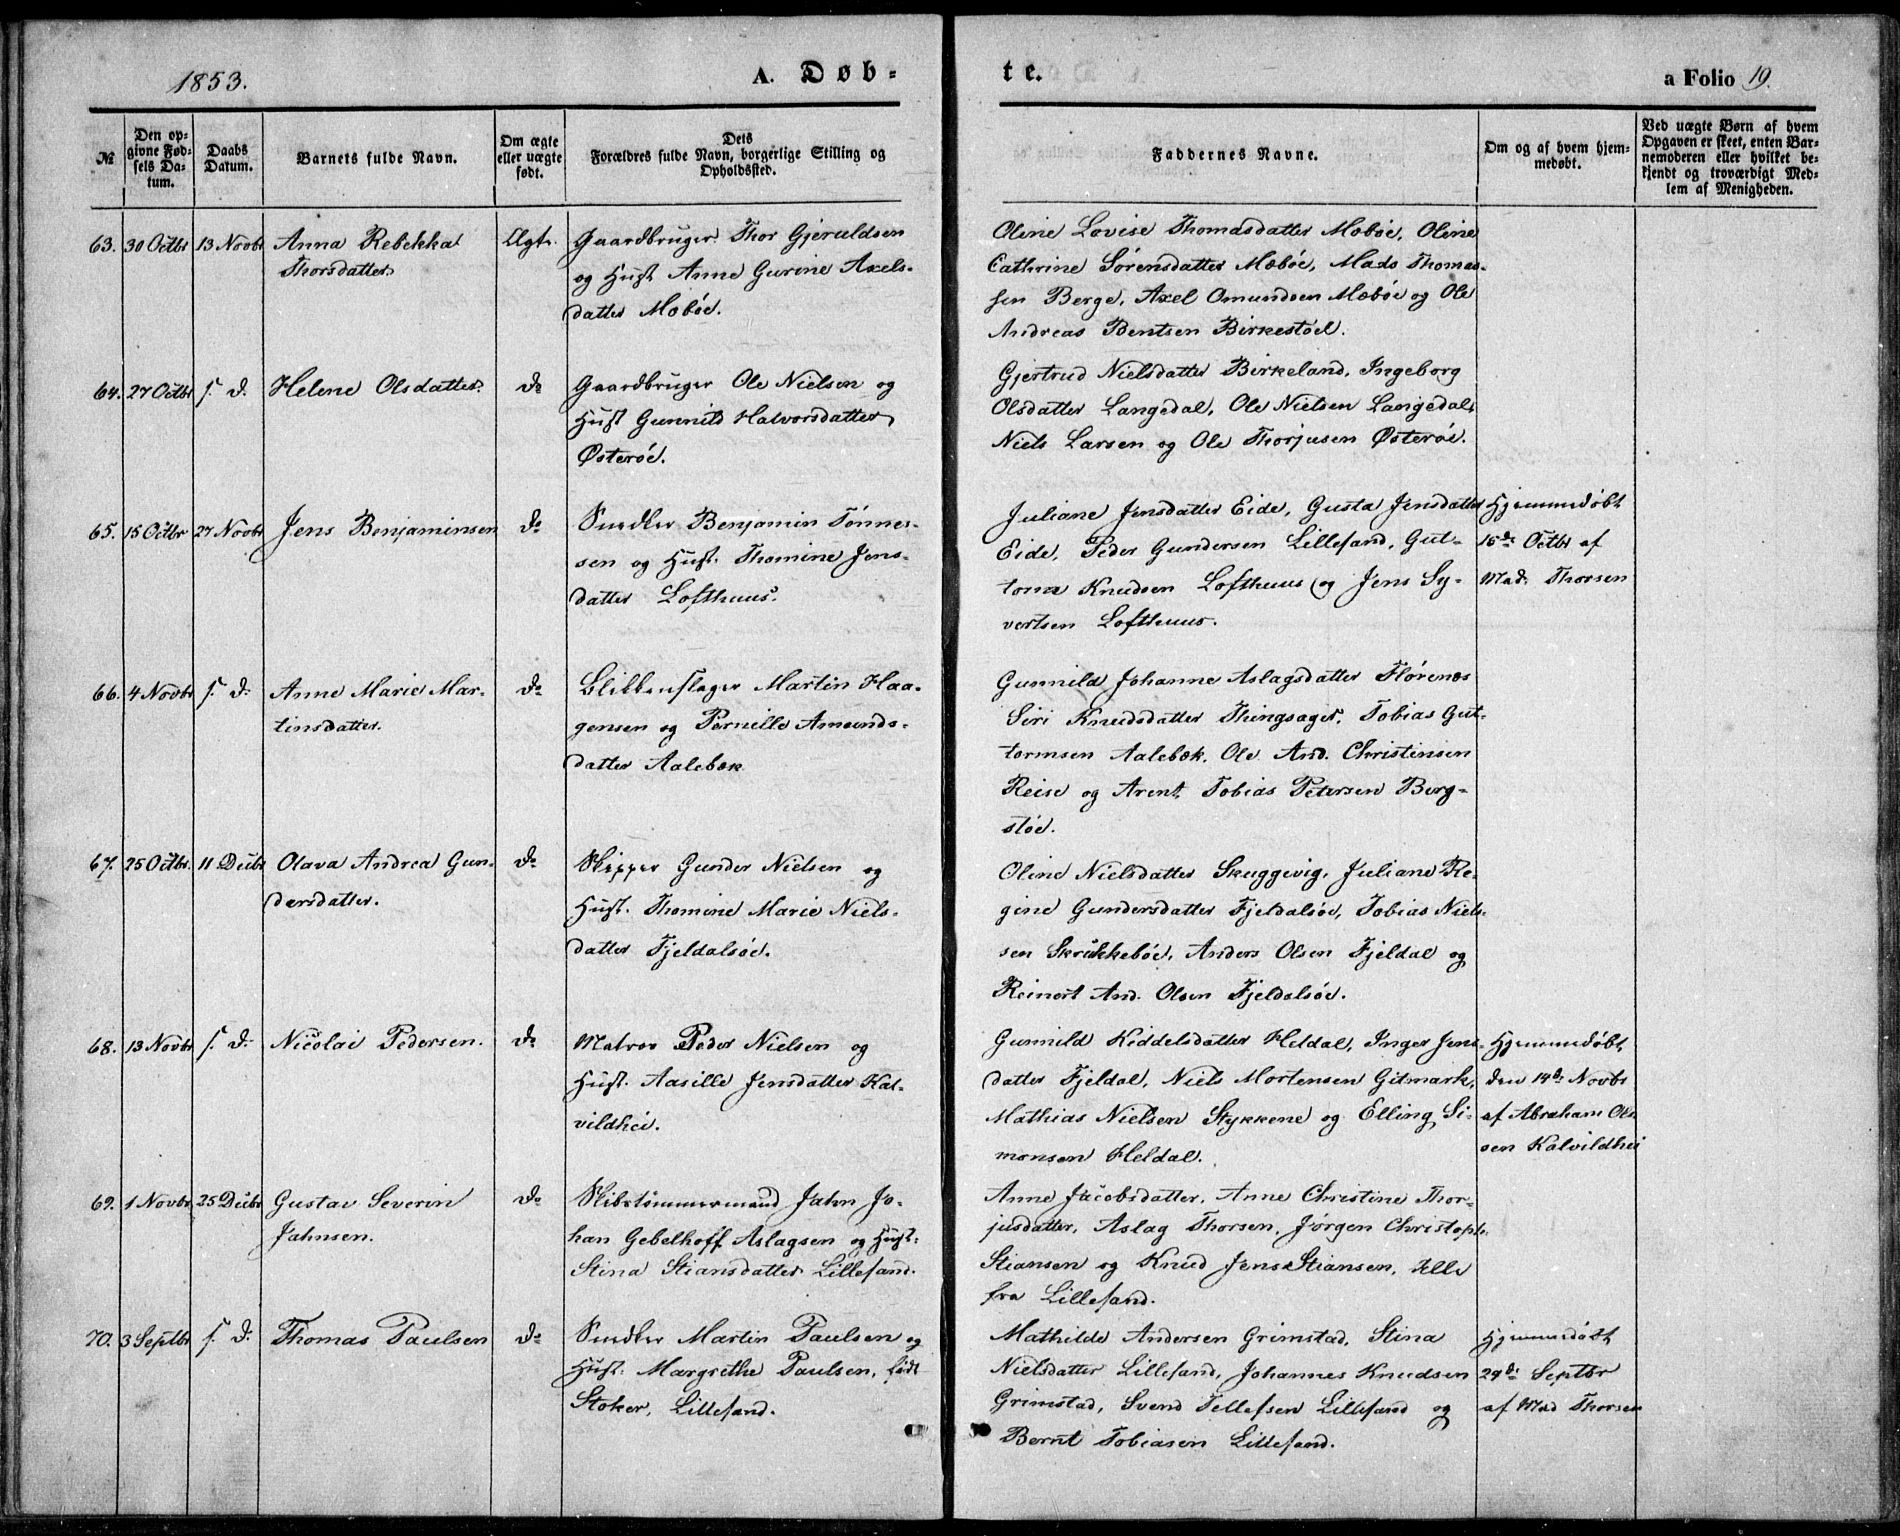 1853.
A. Døb-
te.
a Folio 19.
№
Den op-
givne Fød-
sels Da-
tum.
Daabs
Datum.
Barnets fulde Navn.
Om ægte
eller uægte
født.
Dets
Forældres fulde Navn, borgerlige Stilling og
Opholdssted.
Faddernes Navne.
Om og af hvem hjem-
medøbt.
Ved uægte Børn af hvem
Opgaven er skeet, enten Bar-
nemoderen eller hvilket be-
kjendt og troværdigt Med-
lem af Menigheden.
63. 30 Octbr 13 Novbr
Anna Rebekka
Thorsdatter
Ægte.
Gaardbruger Thor Gjeruldsen
og Hust Anne Gurine Axels-
datter Mæbøe.
Oline Lovise Thomasdatter Mæbøe, Oline
Cathrine Sørensdatter Mæbøe, Mads Thomas-
sen Berge, Axel Omundsen Mæbøe og Ole
Andreas Bentsen Birkestøel.
64. 27 Octbr s. d.
Helene Olsdatter.
do
Gaardbruger Ole Nielsen og
Hust Gunnild Halvorsdatter
Østerøe.
Gjertrud Nielsdatter Birkeland, Ingeborg
Olsdatter Langedal, Ole Nielsen Langedal,
Niels Larsen og Ole Thorjusen Østerøe.
65. 15 Octbr 27 Novbr
Jens Benjaminsen
do
Snedker Benjamin Tønnes-
sen og Hust. Thomine Jens-
datter Lofthuus.
Juliane Jensdatter Eide, Gusta Jensdatter
Eide, Peder Gundersen Lillesand, Gut-
torm Knudsen Lofthuus og Jens Sy-
vertsen Lofthuus.
Hjemmedøbt
16de Octbr af
Mad. Thorsen
66. 4 Novbr s. d.
Anne Marie Mar-
tinsdatter.
do
Blikkenslager Martin Haa-
gensen og Pernille Amunds-
datter Aalebæk
Gunnild Johanne Aslagsdatter Flørenæs
Siri Knudsdatter Thingsager, Tobias Gut-
tormsen Aalebæk, Ole And. Christensen
Reise og Arent Tobias Petersen Berg-
støe.
67. 25 Octbr. 11 Decbr
Olava Andrea Gun-
dersdatter.
do
Skipper Gunder Nielsen og
Hust. Thomine Marie Niels-
datter Fjeldalsøe.
Oline Nielsdatter Skuggevig, Juliane Re-
gine Gundersdatter Fjeldalsøe, Tobias Niel-
sen Skrukkebøe, Anders Olsen Fjeldal og
Reinert And. Olsen Fjeldalsøe.
68. 13 Novbr s. d.
Nicolai Pedersen.
do
Matros Peder Nielsen og
Hust. Aasille Jensdatter Kal-
vildhei.
Gunnild Kiddelsdatter Heldal, Inger Jens-
datter Fjeldal, Niels Mortensen Gitmark,
Mathias Nielsen Stykkene og Elling Si-
monsen Heldal.
Hjemmedøbt
den 14de Novbr
af Abraham Ol-
sen Kalvildhei
69. 1 Novbr 25 Decbr
Gustav Severin
Jahnsen.
do
Skibstømmermand Jahn Jo-
han Gebelhoff Aslagsen og Hust.
Stina Stiansdatter Lillesand.
Anne Jacobsdatter, Anne Christine Thor-
jusdatter, Aslag Thorsen, Jørgen Christoph.
Stiansen og Knud Jens Stiansen, alle
fra Lillesand.
70. 3 Septbr s. d.
Thomas Paulsen
do
Snedker Martin Paulsen og
Hust. Margrethe Paulsen, født
Stoker, Lillesand.
Mathilde Andersen Grimstad, Stina
Nielsdatter Lillesand, Johannes Knudsen
Grimstad, Svend Tellefsen Lillesand og
Bernt Tobiasen Lillesand.
Hjemmedøbt
29de Septbr
af Mad Thorsen